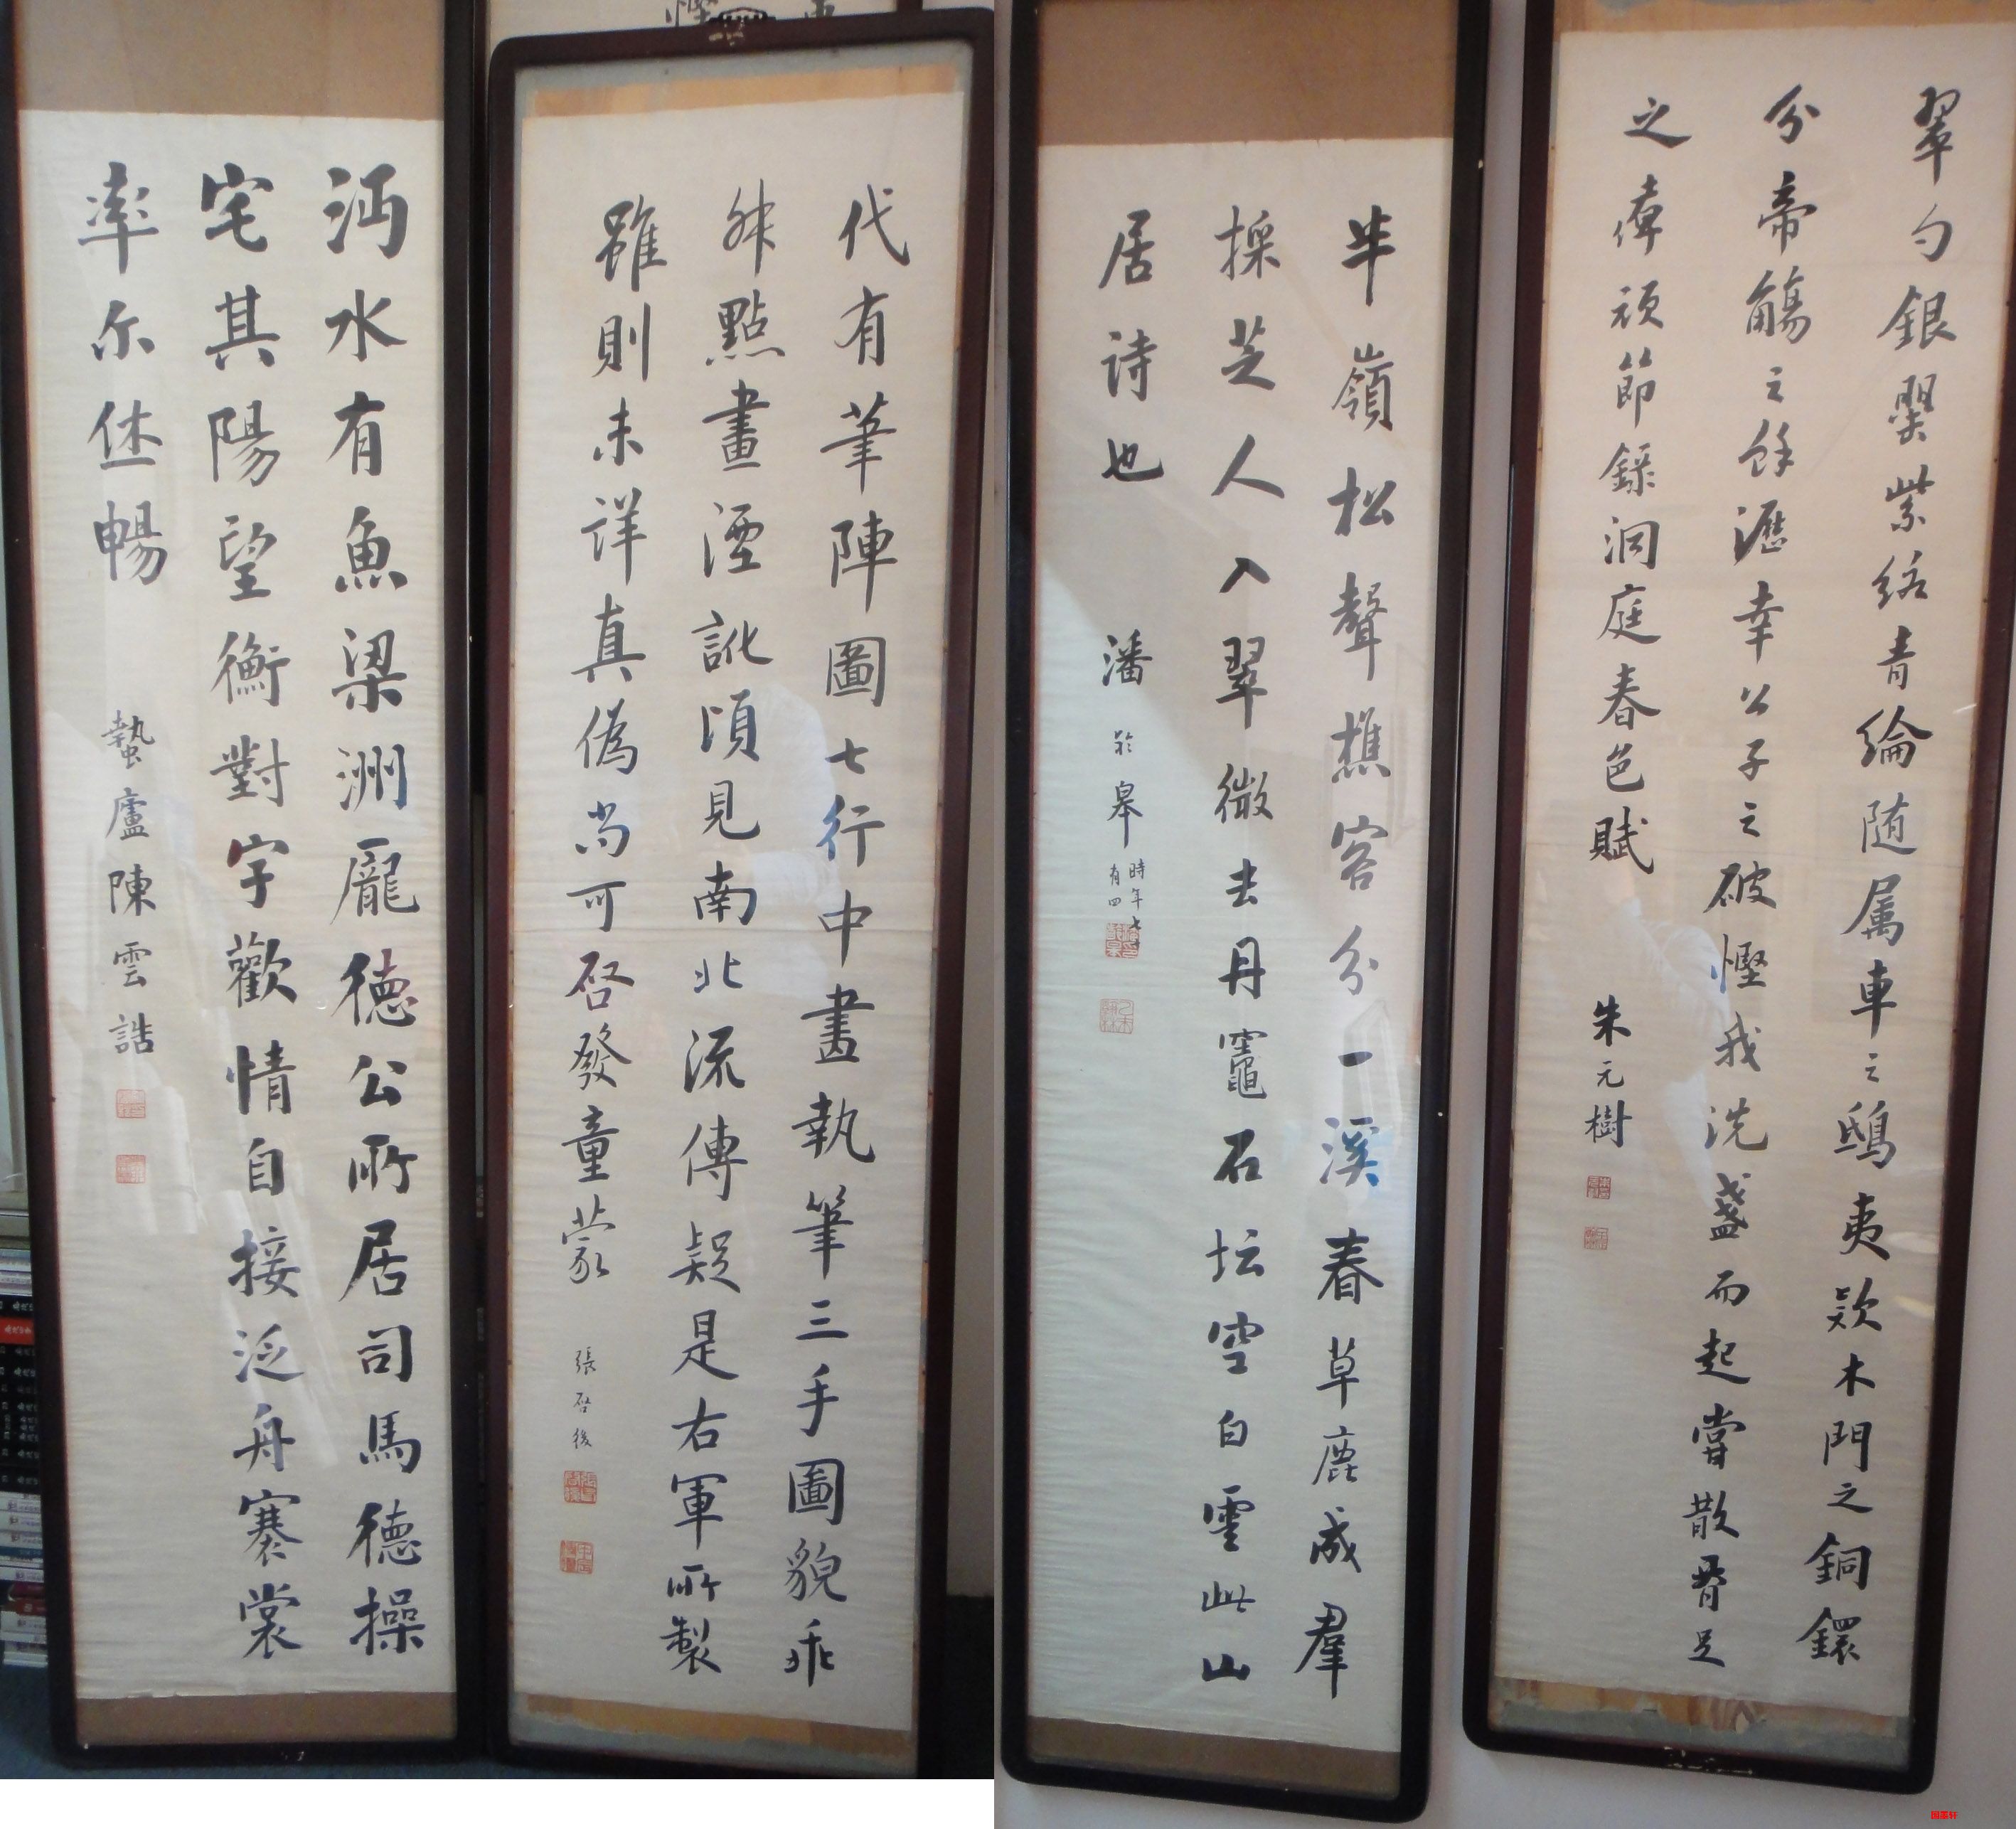 翠勺銀罌紫絡青綸随属車之鴟夷欵木門之銅鐶
分帝觴之餘瀝幸公子之破慳我洗盞而起嘗散腰足
之痺頑節録洞庭春色賦
朱元樹
半嶺松聲樵客分一溪春草鹿成羣
採芝人入翠微去丹竈石坛空白雲此山
居诗也
潘齡皋
時年七十
有四
代有筆陣圖七行中畫執筆三手圖貌乖
舛點畫湮訛頃見南北流傳疑是右軍所製
雖則未詳真偽尚可啓發童蒙
張啓後
沔水有魚梁洲龐德公所居司馬德操
宅其陽望衡對宇歡情自接泛舟褰裳
率尔休暢
蟄廬陳雲誥
国墨轩